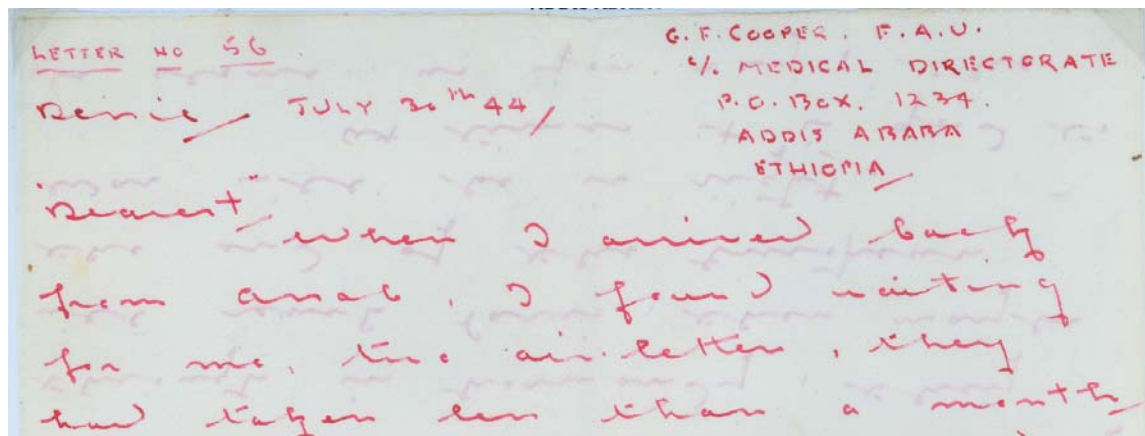 LETTER NO 56.
G. F. COOPER. F.A.U.
c/o MEDICAL DIRECTORATE
P.O. BOX. 1234.
ADDIS ABABA
ETHIOPIA
Dessie, JULY 30th 44
"Dearest"
When I arrived back
from Assab, I found waiting
for me, two air-letters, they
had taken less than a month